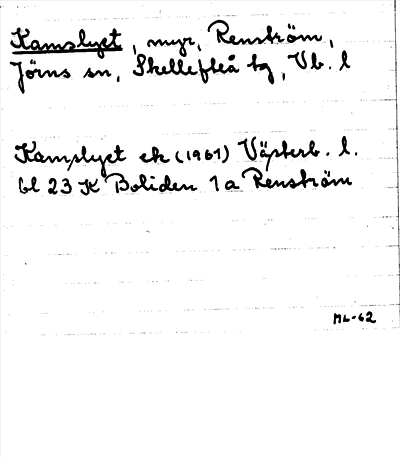 Kamslyet, myr, Renström,
Jörns sn, Skellefteå tg, Vb. l
Kamslyet ek (1961) Västerb. l.
bl 23 K Boliden 1a Renström
ML-62